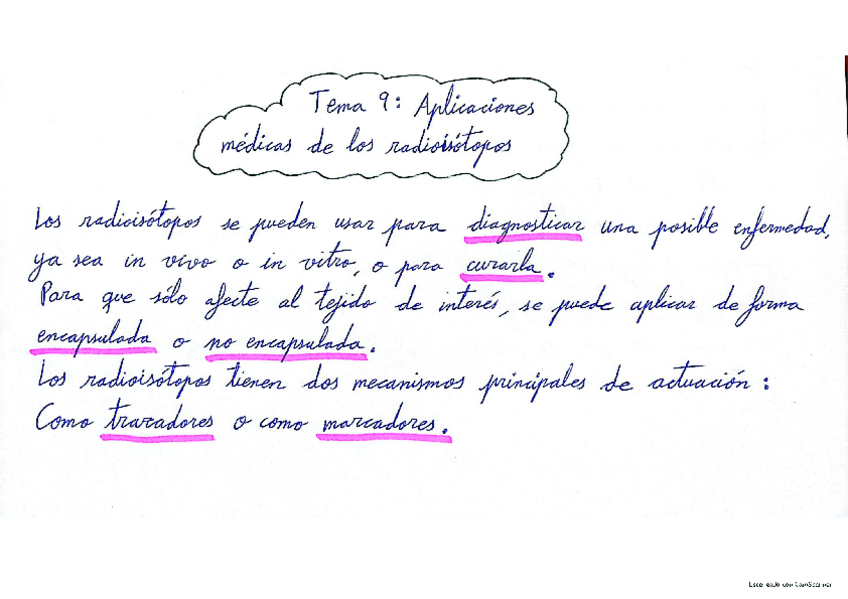 Tema 9: Aplicaciones
médicas de los radioisótopos
Los radioisótopos se pueden usar para diagnosticar una posible enfermedad,
ya sea in vivo o in vitro, o para curarla.
Para que sólo afecte al tejido de interés, se puede aplicar de forma
encapsulada o no encapsulada.
Los radioisótopos tienen dos mecanismos principales de actuación:
Como trazadores o como marcadores.
Escaneado con CamScanner